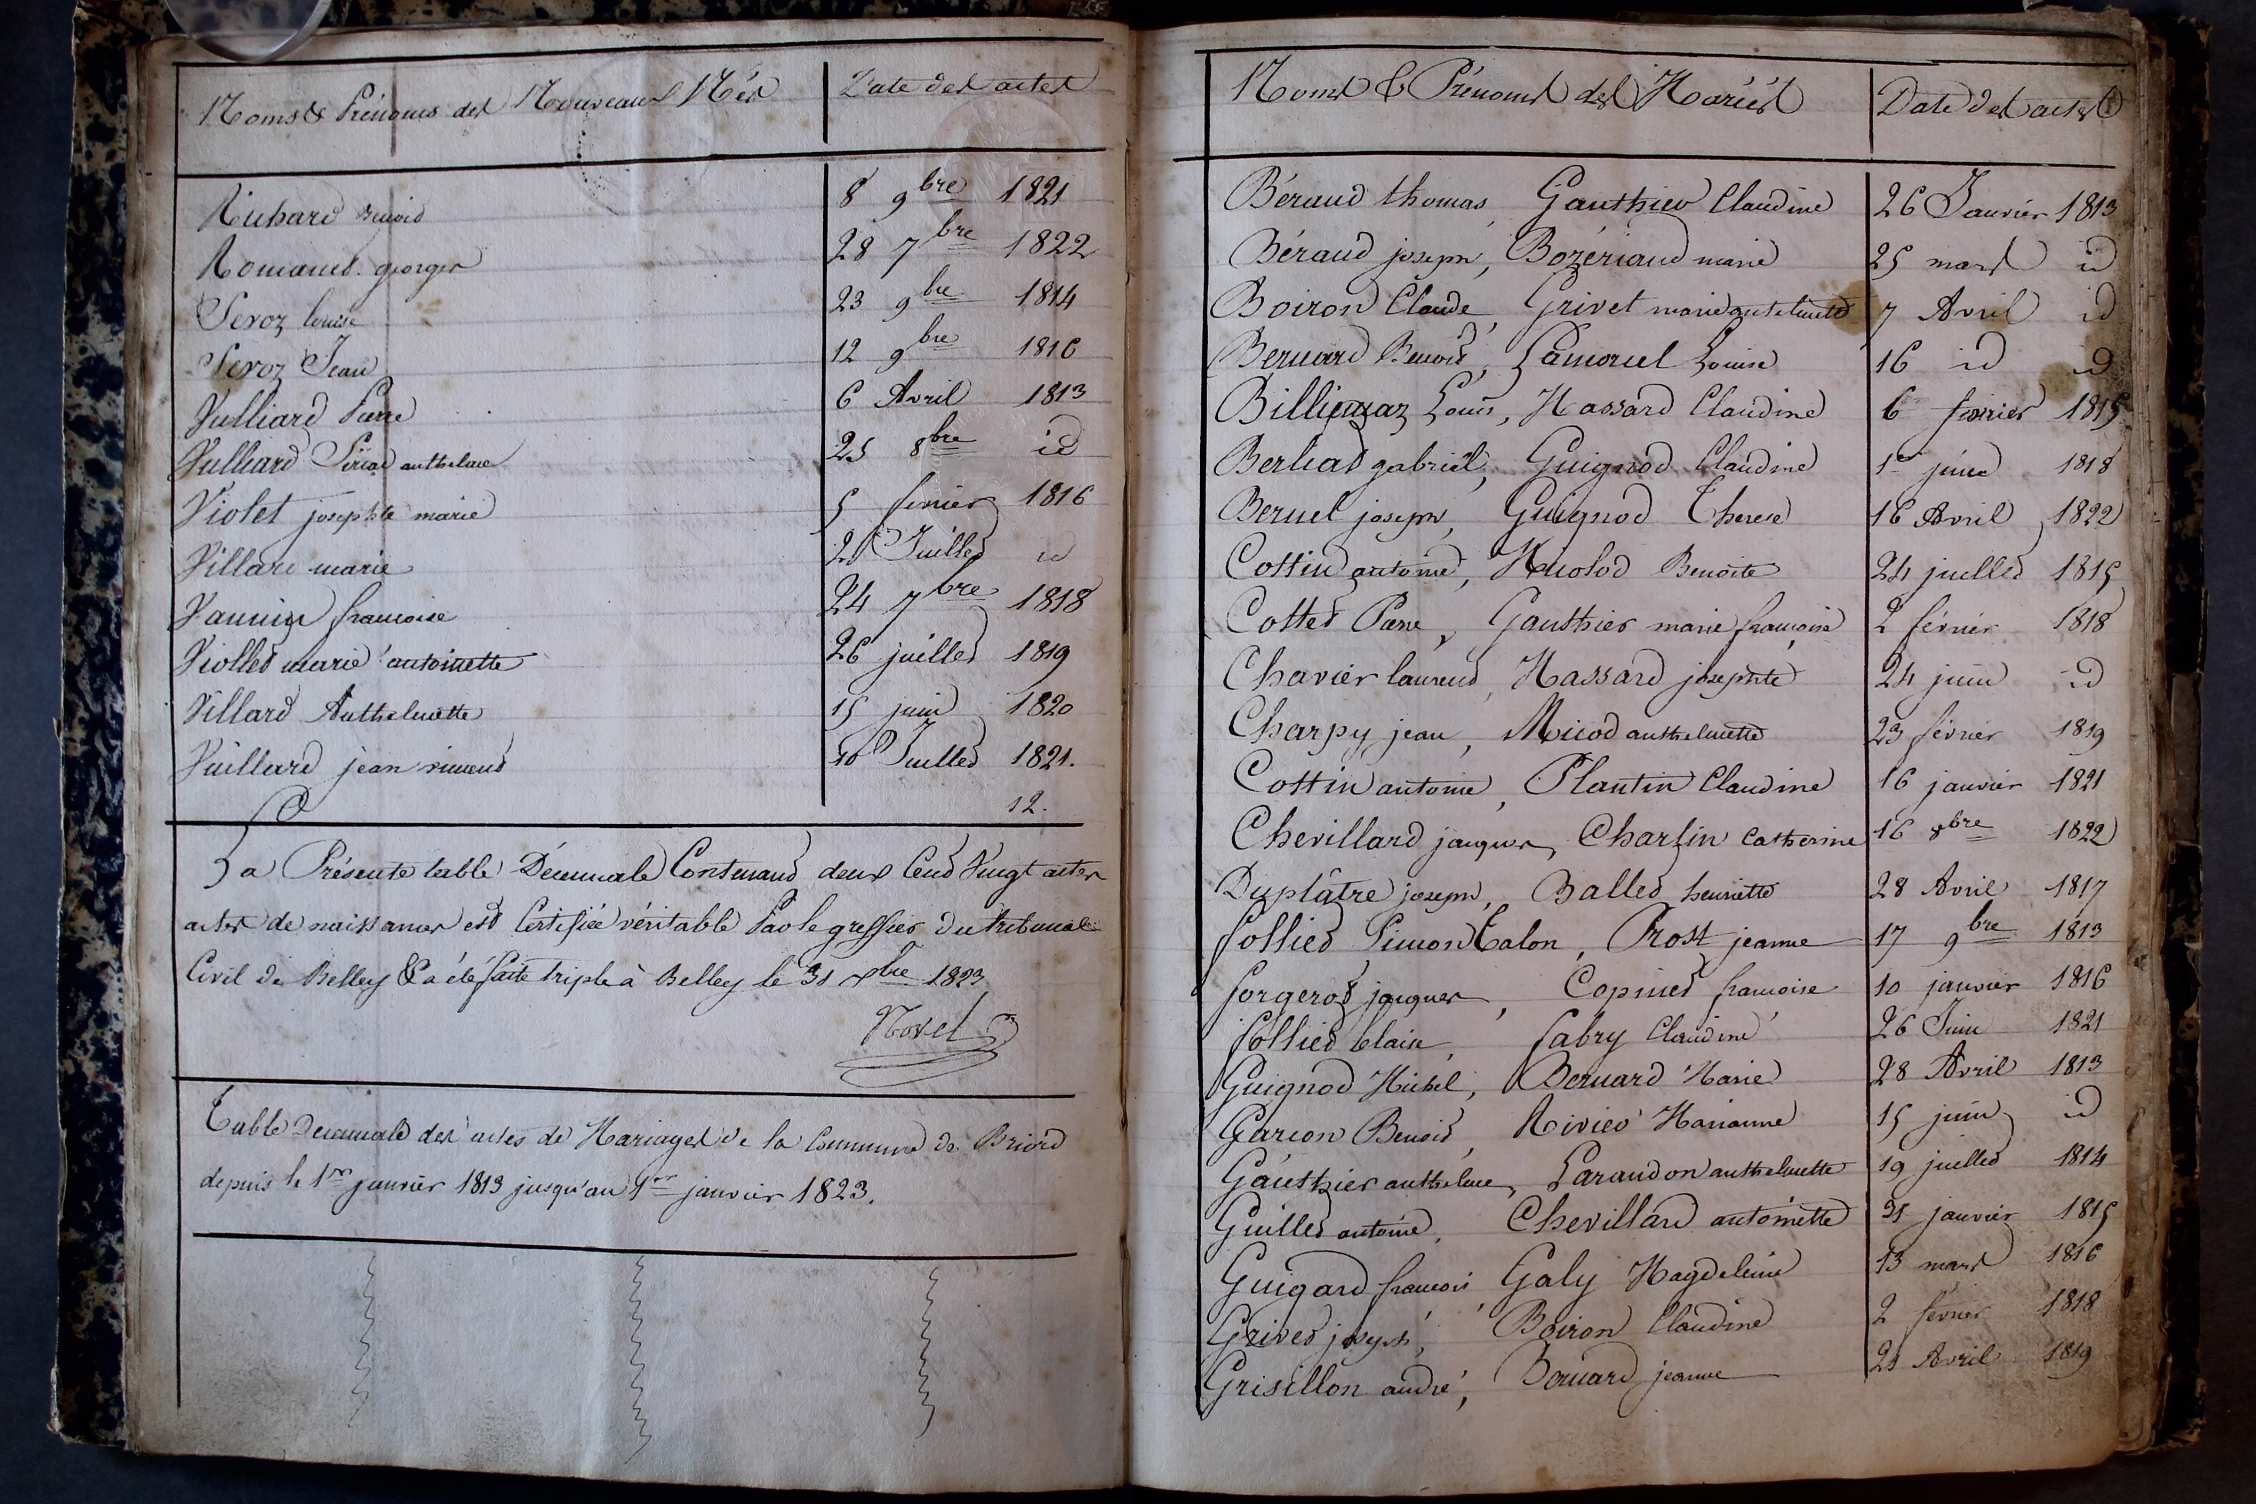 Noms & Prénoms des Nouveaux Nés Date des actes
Richard Benoid 8 9bre 1821
Romanet georges 28 7bre 1822
Seroz louise 23 9bre 1814
Seroz Jean 12 9bre 1816
Vulliard Pierre 6 Avril 1813
Vulliard Pierre anthelme 25 8bre id
Violet josephte marie 5 février 1816
Villard marie Juillet id
Vannier francoise 24 7bre 1818
Viollet marie antoinette 26 juillet 1819
Villard Anthelmette 15 juin 1820
Vuillard jean vincent 10 Juillet 1821.
12.
La Présente table Décennale Contenant deux Cent Vingt actes
actes de naissances est Certifiée véritable Par le greffier du tribunal
Civil de Belley & a été faite triple à Belley le 31 xbre 1823
Novel
Table Décennale des actes de Mariages de la Commune de Briord
depuis le 1er janvier 1813 jusqu'au 1er janvier 1823.
Noms & Prénoms des Mariés Date des actes
Béraud thomas, Gauthier Claudine 26 Janvier 1813
Béraud joseph, Bozériand marie 25 mars id
Boiron Claude, Grivet marie anthelmette 7 Avril id
Bernard Benoit, Lamorel Louise 16 id id
Billiemaz Louis, Massard Claudine 6 février 1815
Berliat gabriel, Guignod Claudine 1er juin 1818
Beruel joseph, Guignod Therese 16 Avril 1822
Cottin antoine, Benoite 24 juillet 1815
Cottet Pierre, Gauthier marie françoise 2 février 1818
Chavier laurend, Massard josephte 24 juin id
Charpy jean, Micod anthelmette 23 février 1819
Cottin antoine, Plantin Claudine 16 janvier 1821
Chevillard jacques, Charlin Catherine 16 8bre 1822
Duplâtre joseph, Ballet henriette 28 Avril 1817
follied Simon Talon, Prost jeanne 17 9bre 1813
forgerot jacques, Copined francoise 10 janvier 1816
follied blaise, fabry Claudine 26 Juin 1821
Guignod Michel, Bernard Marie 28 Avril 1813
Garcon Benoid, Rivier Marianne 15 juin id
Gauthier anthelme, Larandon anthelmette 19 juillet 1814
Guilled antoine, Chevillard antoinette 31 janvier 1815
Guigard francois, Galy Magdeleine 13 mars 1816
Grived joseph, Boiron Claudine 2 février 1818
Grisillon andré, Bernard jeanne 21 Avril 1819